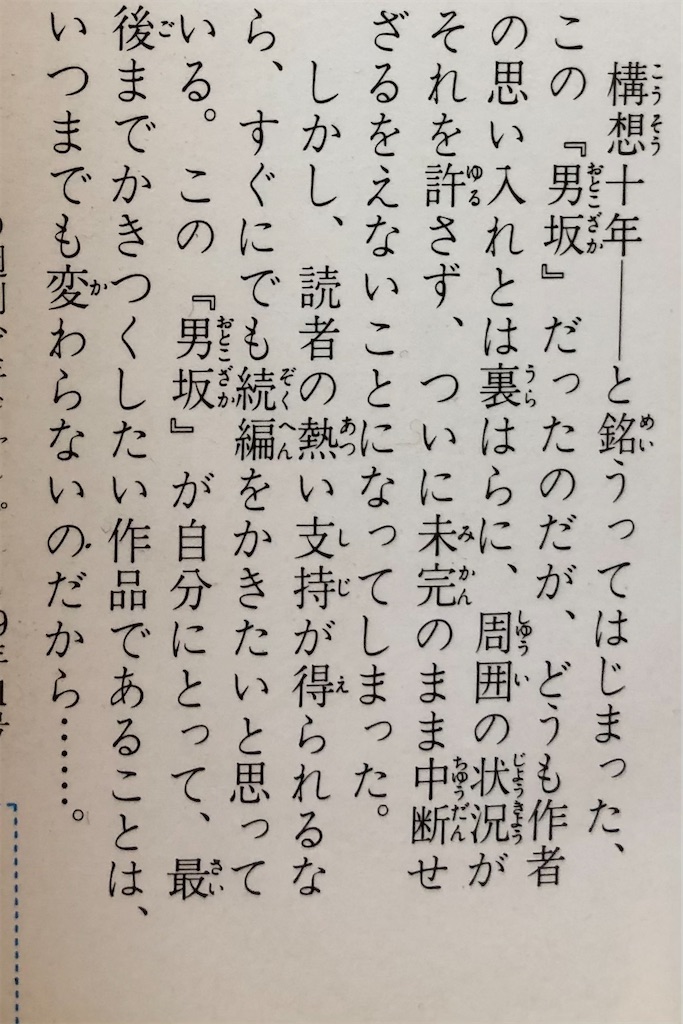 構想十年――と銘うってはじまった、
この『男坂』だったのだが、どうも作者
の思い入れとは裏はらに、周囲の状況が
それを許さず、ついに未完のまま中断せ
ざるをえないことになってしまった。
しかし、読者の熱い支持が得られるな
ら、すぐにでも続編をかきたいと思って
いる。この『男坂』が自分にとって、最
後までかきつくしたい作品であることは、
いつまでも変わらないのだから……。